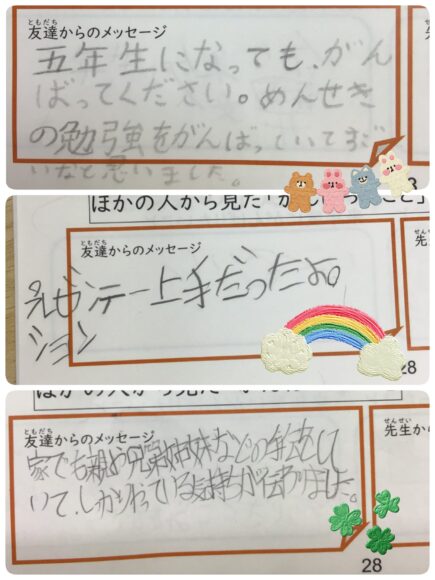 ともだち
友達からのメッセージ
五年生になっても、がん
ばってください。めんせき
の勉強をがんばっていてすご
いなと思いました。
せん
先
3
ほかの人から見た「が
こと」
ともだち
友達からのメッセージ
プレゼンテー上手だったよ。
ション
せん
先
28
ともだち
友達からのメッセージ
家でも親や兄弟姉妹などの手伝をして
いて、しっかりやっている気持ちが伝わりました。
せんせい
先生か
28